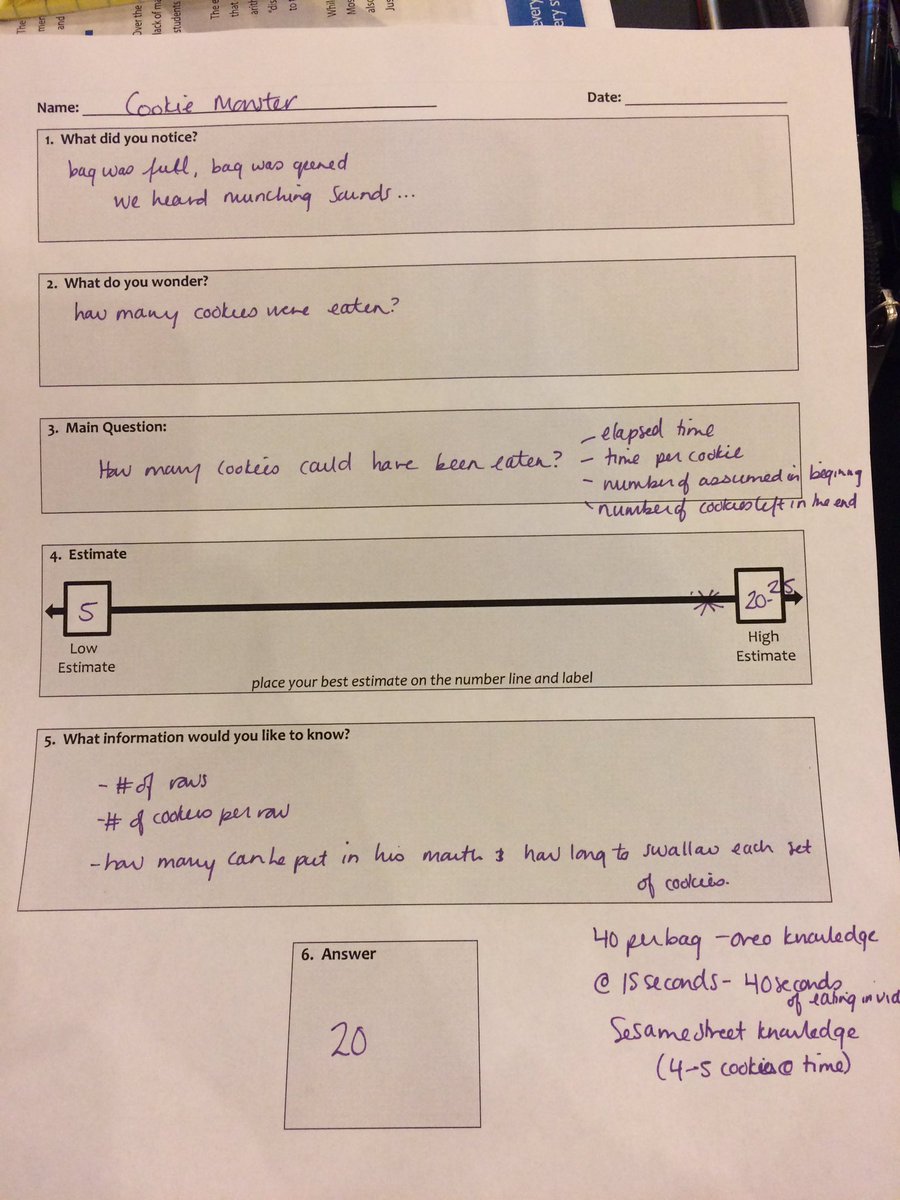 Name: Cookie Monster
Date:
1. What did you notice?
bag was full, bag was opened
we heard munching sounds...
2. What do you wonder?
how many cookies were eaten?
3. Main Question:
How many cookies could have been eaten?
- elapsed time
- time per cookie
- number of assumed in beginng
- number of cookies left in the end
4. Estimate
5
20-25
Low
Estimate
High
Estimate
place your best estimate on the number line and label
5. What information would you like to know?
- # of rows
- # of cookies per row
- how many can he put in his mouth & how long to swallow each set
of cookies.
6. Answer
20
40 per bag - oreo knowledge
@ 15 seconds - 40 seconds
of eating in vid
Sesame street knowledge
(4-5 cookies @ time)